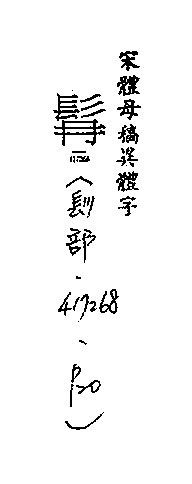 宋體母稿異體字
髯二(髟部、417268、P20)